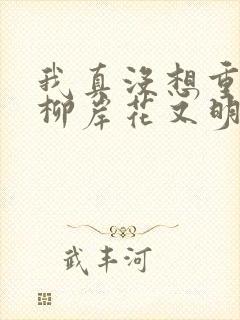 我真没想重
柳岸花又明
武丰河